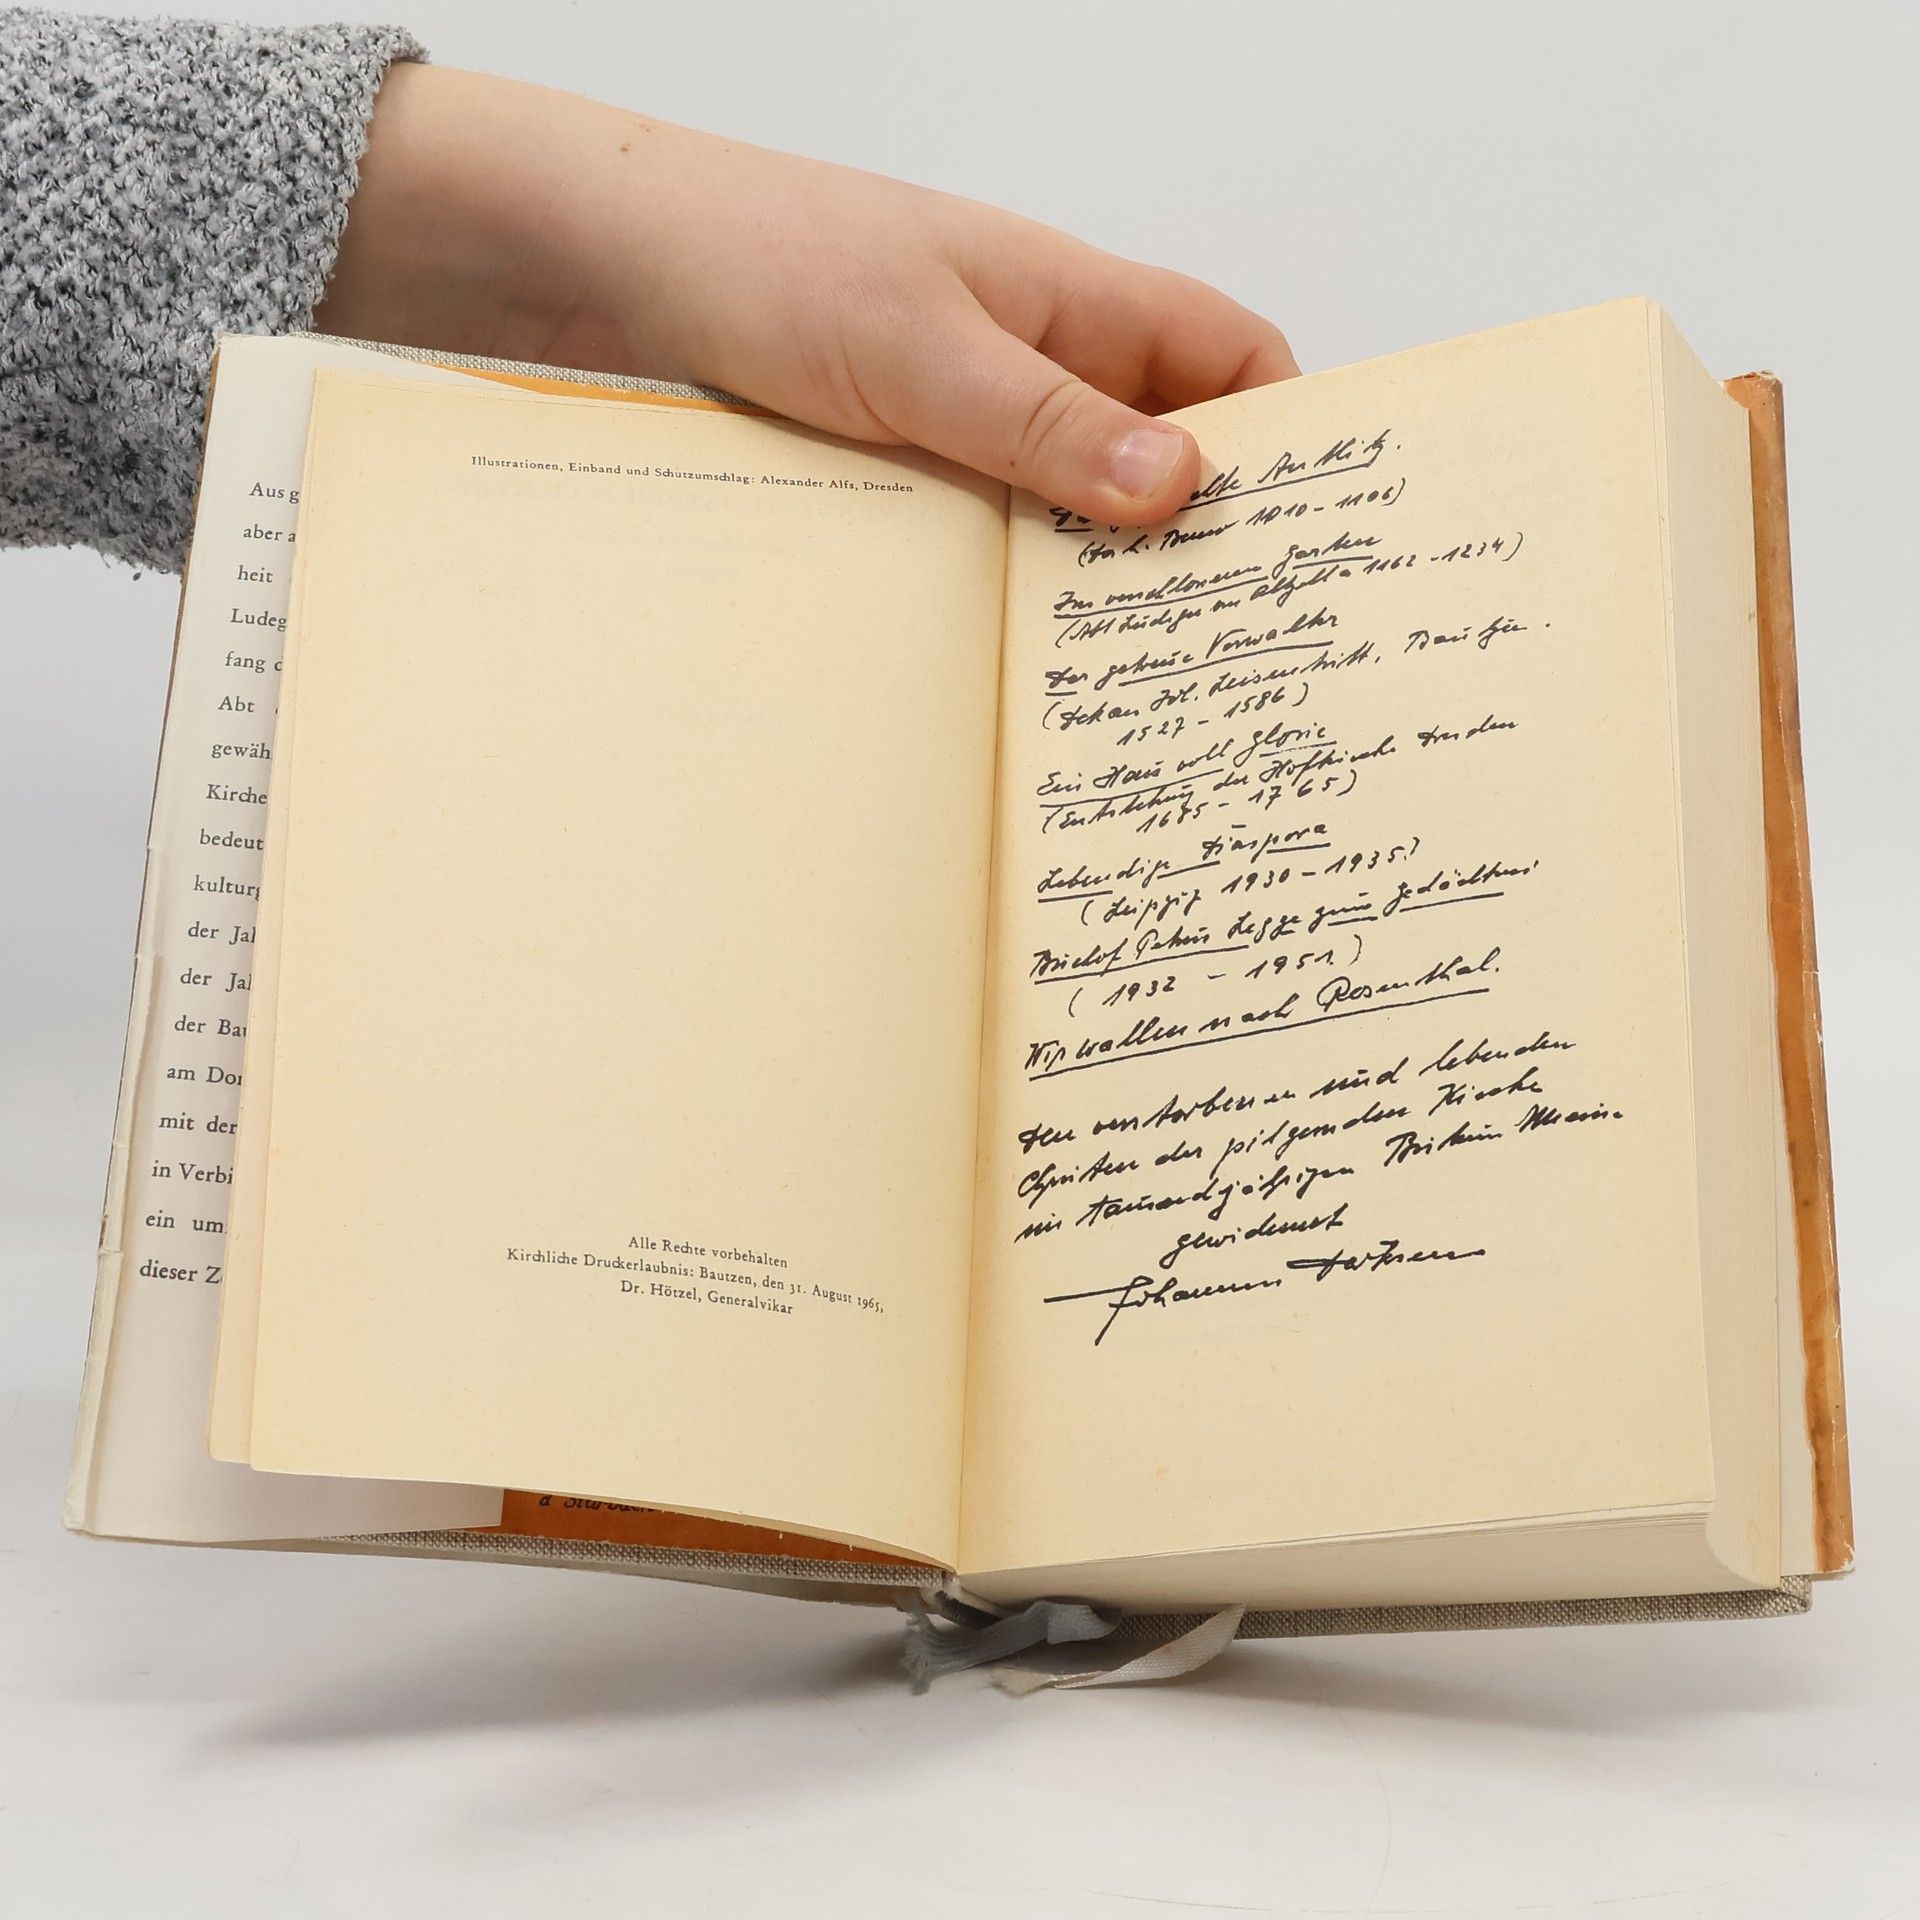 Aus g
aber a
heit
Ludeg
fang d
Abt
gewäh
Kirche
bedeut
kulturg
der Jal
der Jal
der Bau
am Dom
mit der
in Verbi
ein um
dieser Z
Illustrationen, Einband und Schutzumschlag: Alexander Alfs, Dresden
Alle Rechte vorbehalten
Kirchliche Druckerlaubnis: Bautzen, den 31. August 1965,
Dr. Hötzel, Generalvikar
Antlitz.
(Der h. Benno 1010 - 1106)
Im verschlossenen Garten
(Abt Ludeger von Altzella 1162 - 1234)
Der getreue Verwalter
(Dekan Joh. Leisentritt, Bautzen.
1527 - 1586)
Ein Haus voll Glorie
(Entstehung der Hofkirche Dresden
1685 - 1765)
Lebendige Diaspora
(Leipzig 1930 - 1935.)
Bischof Petrus Legge zum Gedächtnis
(1932 - 1951.)
Wir wallen nach Rosenthal.
Den verstorbenen und lebenden
Christen der pilgernden Kirche
im tausendjährigen Bistum Meißen
gewidmet
Johannes Derksen